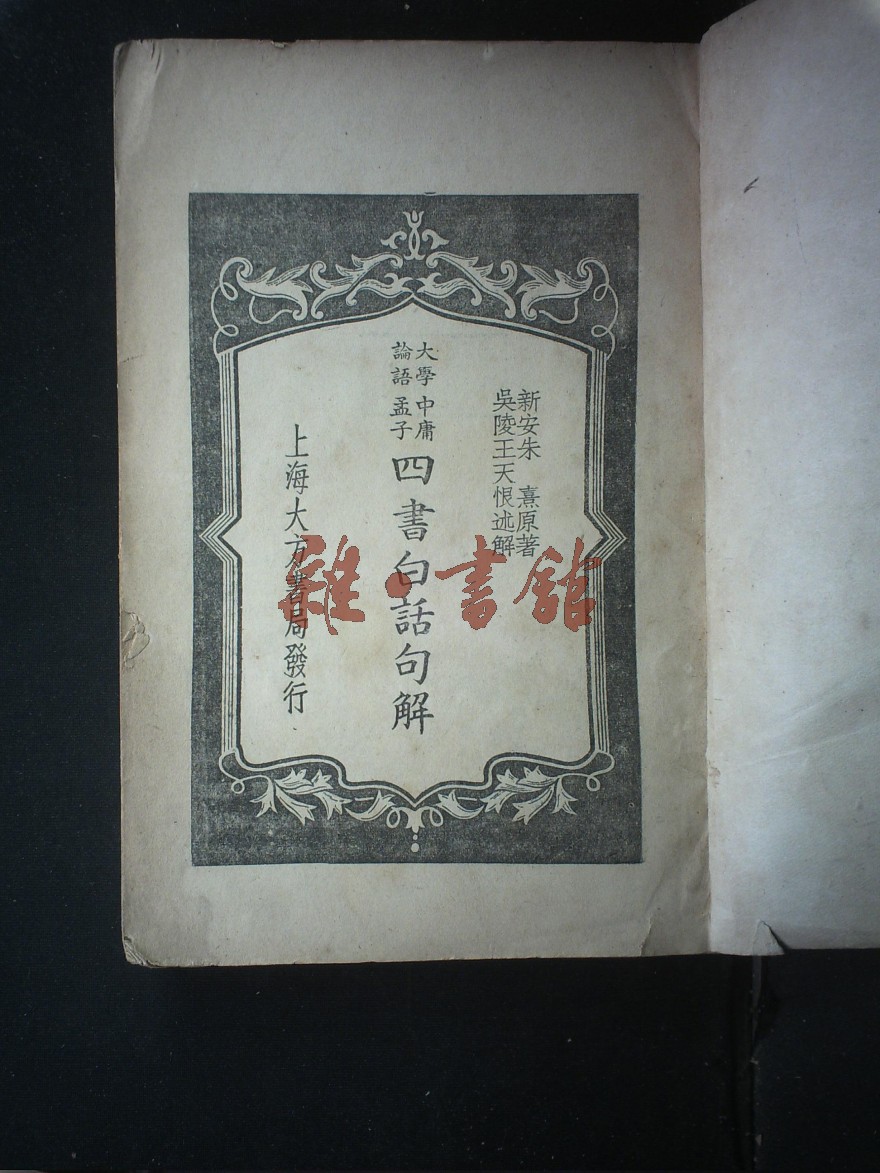 新安朱熹原著
吳陵王天恨述解
大學中庸
論語孟子
四書白話句解
上海大方書局發行
雜·書館